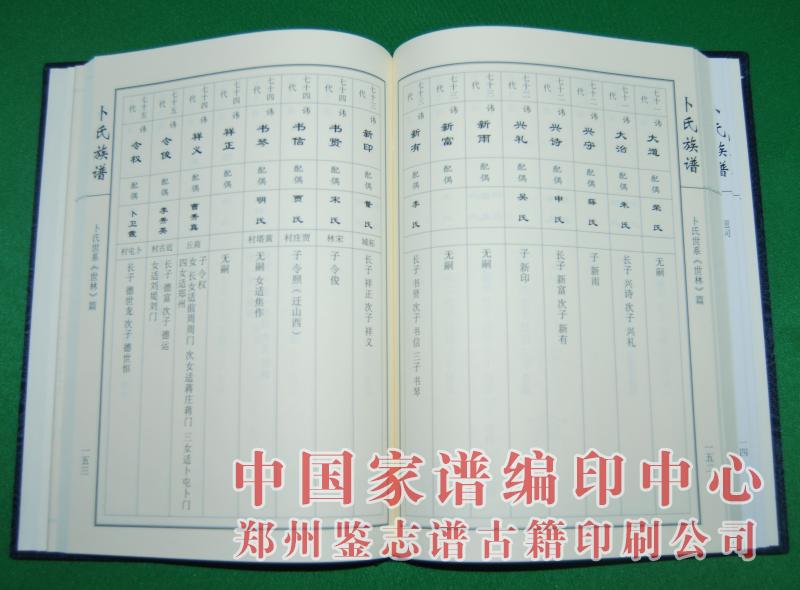 卜氏族谱
卜氏族谱
卜氏世系《世林》篇
七十一代 讳 大道 配偶 荣氏 无嗣
七十一代 讳 大治 配偶 朱氏 长子 兴诗 次子 兴礼
七十二代 讳 兴守 配偶 薛氏 子 新雨
七十二代 讳 兴诗 配偶 申氏 长子 新富 次子 新有
七十二代 讳 兴礼 配偶 吴氏 子 新印
七十三代 讳 新雨 配偶 无嗣
七十三代 讳 新富 配偶 无嗣
七十三代 讳 新有 配偶 李氏 长子 书贤 次子 书信 三子 书琴
七十三代 讳 新印 配偶 氏 柘城 长子 祥正 次子 祥义
七十四代 讳 书贤 配偶 宋氏 宋林 子 令俊
七十四代 讳 书信 配偶 贾氏 贾庄村 子 令熙（迁山西）
七十四代 讳 书琴 配偶 明氏 黄塔村 无嗣 女适焦作
七十四代 讳 祥正 配偶 无嗣
七十四代 讳 祥义 配偶 曹秀真 商丘 子 令权 女 长女适前周周门 次女适蒋庄蒋门 三女适卜屯卜门 四女适郑州
七十五代 讳 令俊 配偶 李秀英 古村 长子 德富 次子 德运 女适刘堤刘门
七十五代 讳 令权 配偶 卜卫霞 卜屯村 长子 德世龙 次子 德世恒
卜氏族谱
卜氏世系《世林》篇
一五三
中国家谱编印中心
郑州鉴志谱古籍印刷公司